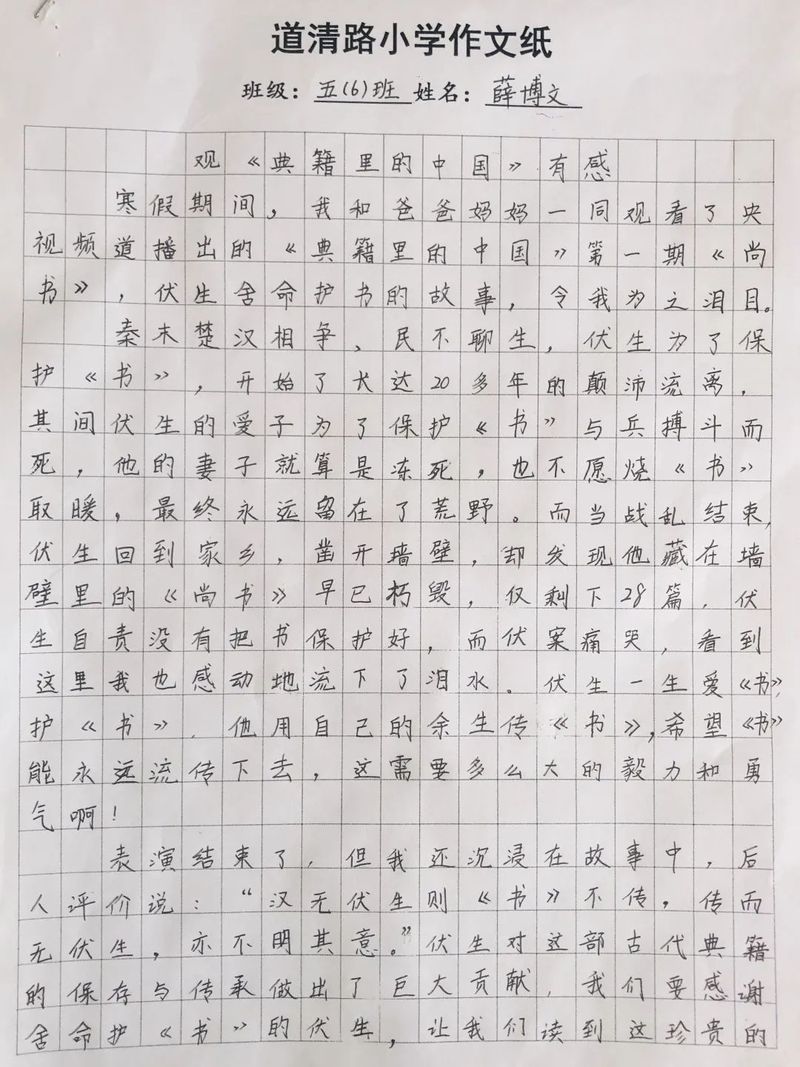 道清路小学作文纸
班级：五(6)班 姓名：薛博文
观《典籍里的中国》有感
寒假期间，我和爸爸妈妈一同观看了央
视频道播出的《典籍里的中国》第一期《尚
书》，伏生舍命护书的故事，令我为之泪目。
秦末楚汉相争、民不聊生，伏生为了保
护《书》，开始了长达20多年的颠沛流离，
其间伏生的爱子为了保护《书》与兵搏斗而
死，他的妻子就算是冻死，也不愿烧《书》
取暖，最终永远留在了荒野。而当战乱结束，
伏生回到家乡，凿开墙壁，却发现他藏在墙
壁里的《尚书》早已朽毁，仅剩下28篇，伏
生自责没有把书保护好，而伏案痛哭，看到
这里我也感动地流下了泪水。伏生一生爱《书》，
护《书》，他用自己的余生传《书》，希望《书》
能永远流传下去，这需要多么大的毅力和勇
气啊！
表演结束了，但我还沉浸在故事中，后
人评价说：“汉无伏生则《书》不传，传而
无伏生，亦不明其意。”伏生对这部古代典籍
的保存与传承做出了巨大贡献，我们要感谢
舍命护《书》的伏生，让我们读到这珍贵的